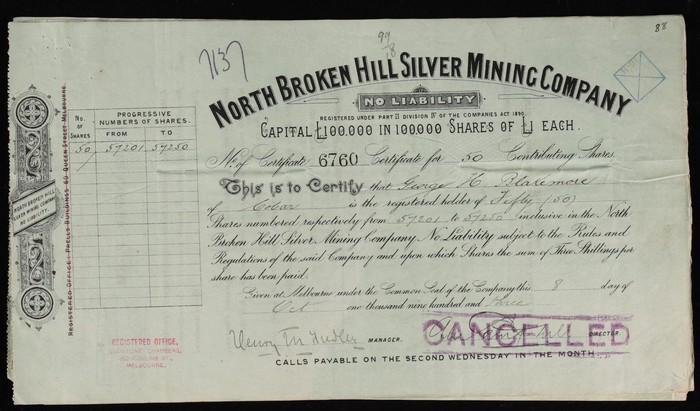 7137
99/18
88
NORTH BROKEN HILL SILVER MINING COMPANY
NO LIABILITY
REGISTERED UNDER PART II DIVISION IV OF THE COMPANIES ACT 1890.
CAPITAL £100.000 IN 100.000 SHARES OF £1 EACH.
No. of Certificate 6760 Certificate for 50 Contributing Shares.
This is to Certify that George H. Blakemore
of Cobar is the registered holder of Fifty (50)
Shares numbered respectively from 57201 to 57250 inclusive in the North
Broken Hill Silver Mining Company No Liability subject to the Rules and
Regulations of the said Company and upon which Shares the sum of Three Shillings per
share has been paid.
Given at Melbourne under the Common Seal of the Company this 8 day of
Oct one thousand nine hundred and three
MANAGER.
DIRECTOR.
CANCELLED
CALLS PAYABLE ON THE SECOND WEDNESDAY IN THE MONTH
No. OF SHARES
PROGRESSIVE NUMBERS OF SHARES.
FROM TO
50 57201 57250
NORTH BROKEN HILL
SILVER MINING COMPANY
NO LIABILITY.
REGISTERED OFFICE: PRELLS BUILDINGS 60 QUEEN STREET MELBOURNE.
REGISTERED OFFICE,
MELBOURNE.